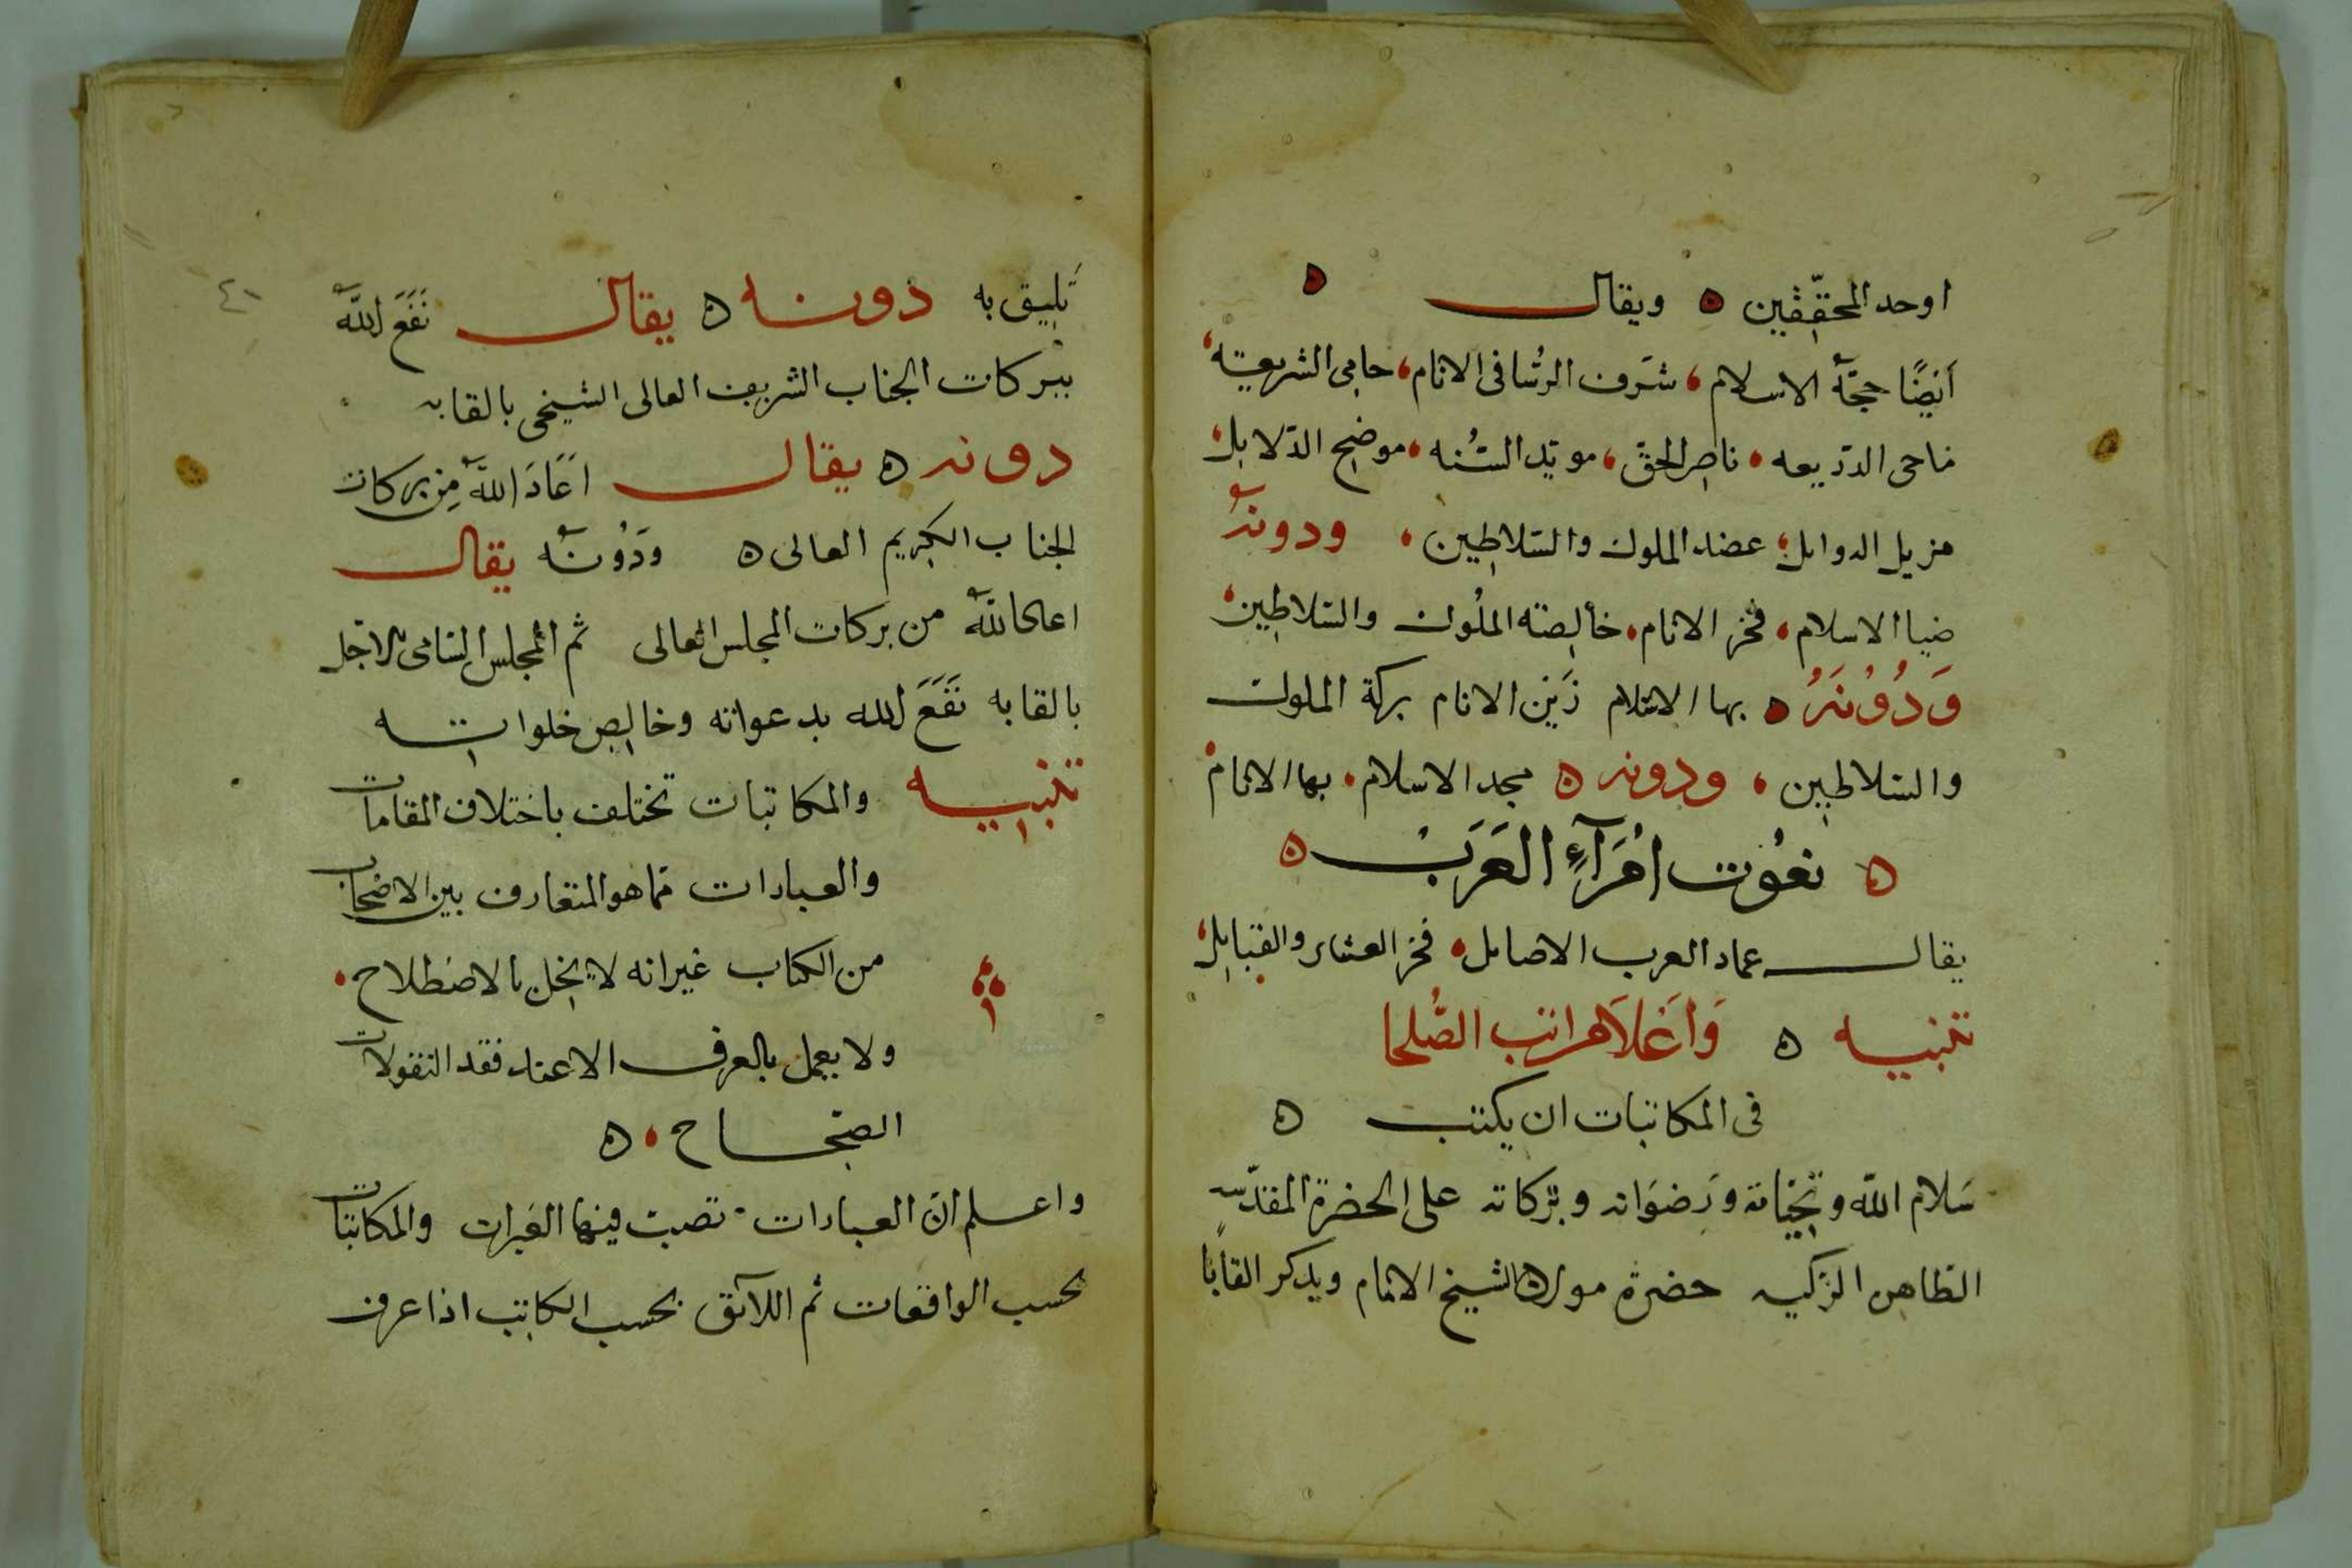 اوحد المحققين ه ويقال ه
أيضًا حجة الاسلام، شرف الرُّسا فى الانام، حامى الشريعة،
ماحى الدديعه، ناصر الحق، مويد السُّنه، موضح الدلايل،
مزيل الدوايل، عضد الملوك والسلاطين، ودونه
ضيا الاسلام، فخر الانام، خالصة الملُوك والسلاطين،
وَدُوُنَهُ ه بها الاسلام زَين الانام بركة الملوك
والسلاطين، ودونه ه مجد الاسلام، بها الانام
ه نعُوت امُرَآءِ العَرَبْ ه
يقال عماد العرب الاصايل، فخر العشاير والقبايل،
تنبيه ه وَاَعْلاَ مراتب الصُّلحا
فى المكاتبات ان يكتب ه
سَلام الله وتحياته وَرضوَانه وبَركاته على الحضرة المقدّسه
الطاهره الزكيه حضرة مولانا الشيخ الامام ويذكر القابا
تليق به دونه ه يقال نَفَعَ الله
ببركات الجناب الشريف العالى الشيخى بالقابه
دونه ه يقال اَعَادَ الله مِن بركات
الجناب الكريم العالى ه وَدُونه يقال
اعاد الله من بركات المجلس العالى ثم المجلس السامى الاجل
بالقابه نَفَعَ الله بدعواته وخالص خلواته
تنبيه والمكاتبات تختلف باختلاف المقامات
والعبارات مما هو المتعارف بين الاصحاب
من الكتاب غير انه لا يخل بالاصطلاح،
ولا يعمل بالعرف الاعند فقد النقولات
الصحاح، ه
واعلم ان العبارات تصب فيها العبرات والمكاتبات
بحسب الواقعات ثم اللآئق بحسب الكاتب اذا عرف